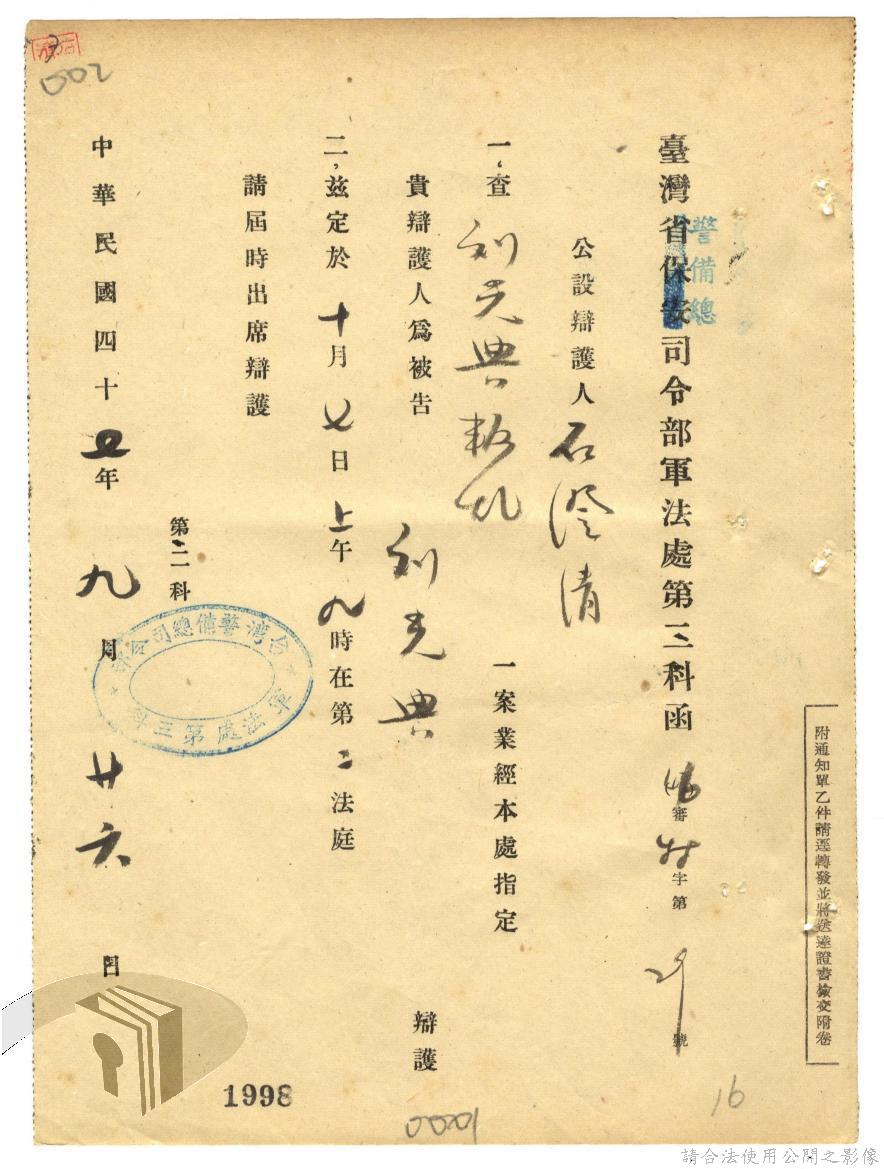 附通知單乙件請逕轉發並將送達證書檢交附卷
臺灣省保安司令部軍法處第三科函
警備總
審 字第 號
公設辯護人 石澄清
一、查 劉光典叛亂 一案業經本處指定
貴辯護人爲被告 劉光典 辯護
二、茲定於十月七日上午九時在第二法庭
請屆時出席辯護
第三科
台灣警備總司令部
軍法處第三科
中華民國四十五年九月廿六日
002
1998
00201
16
請合法使用公開之影像